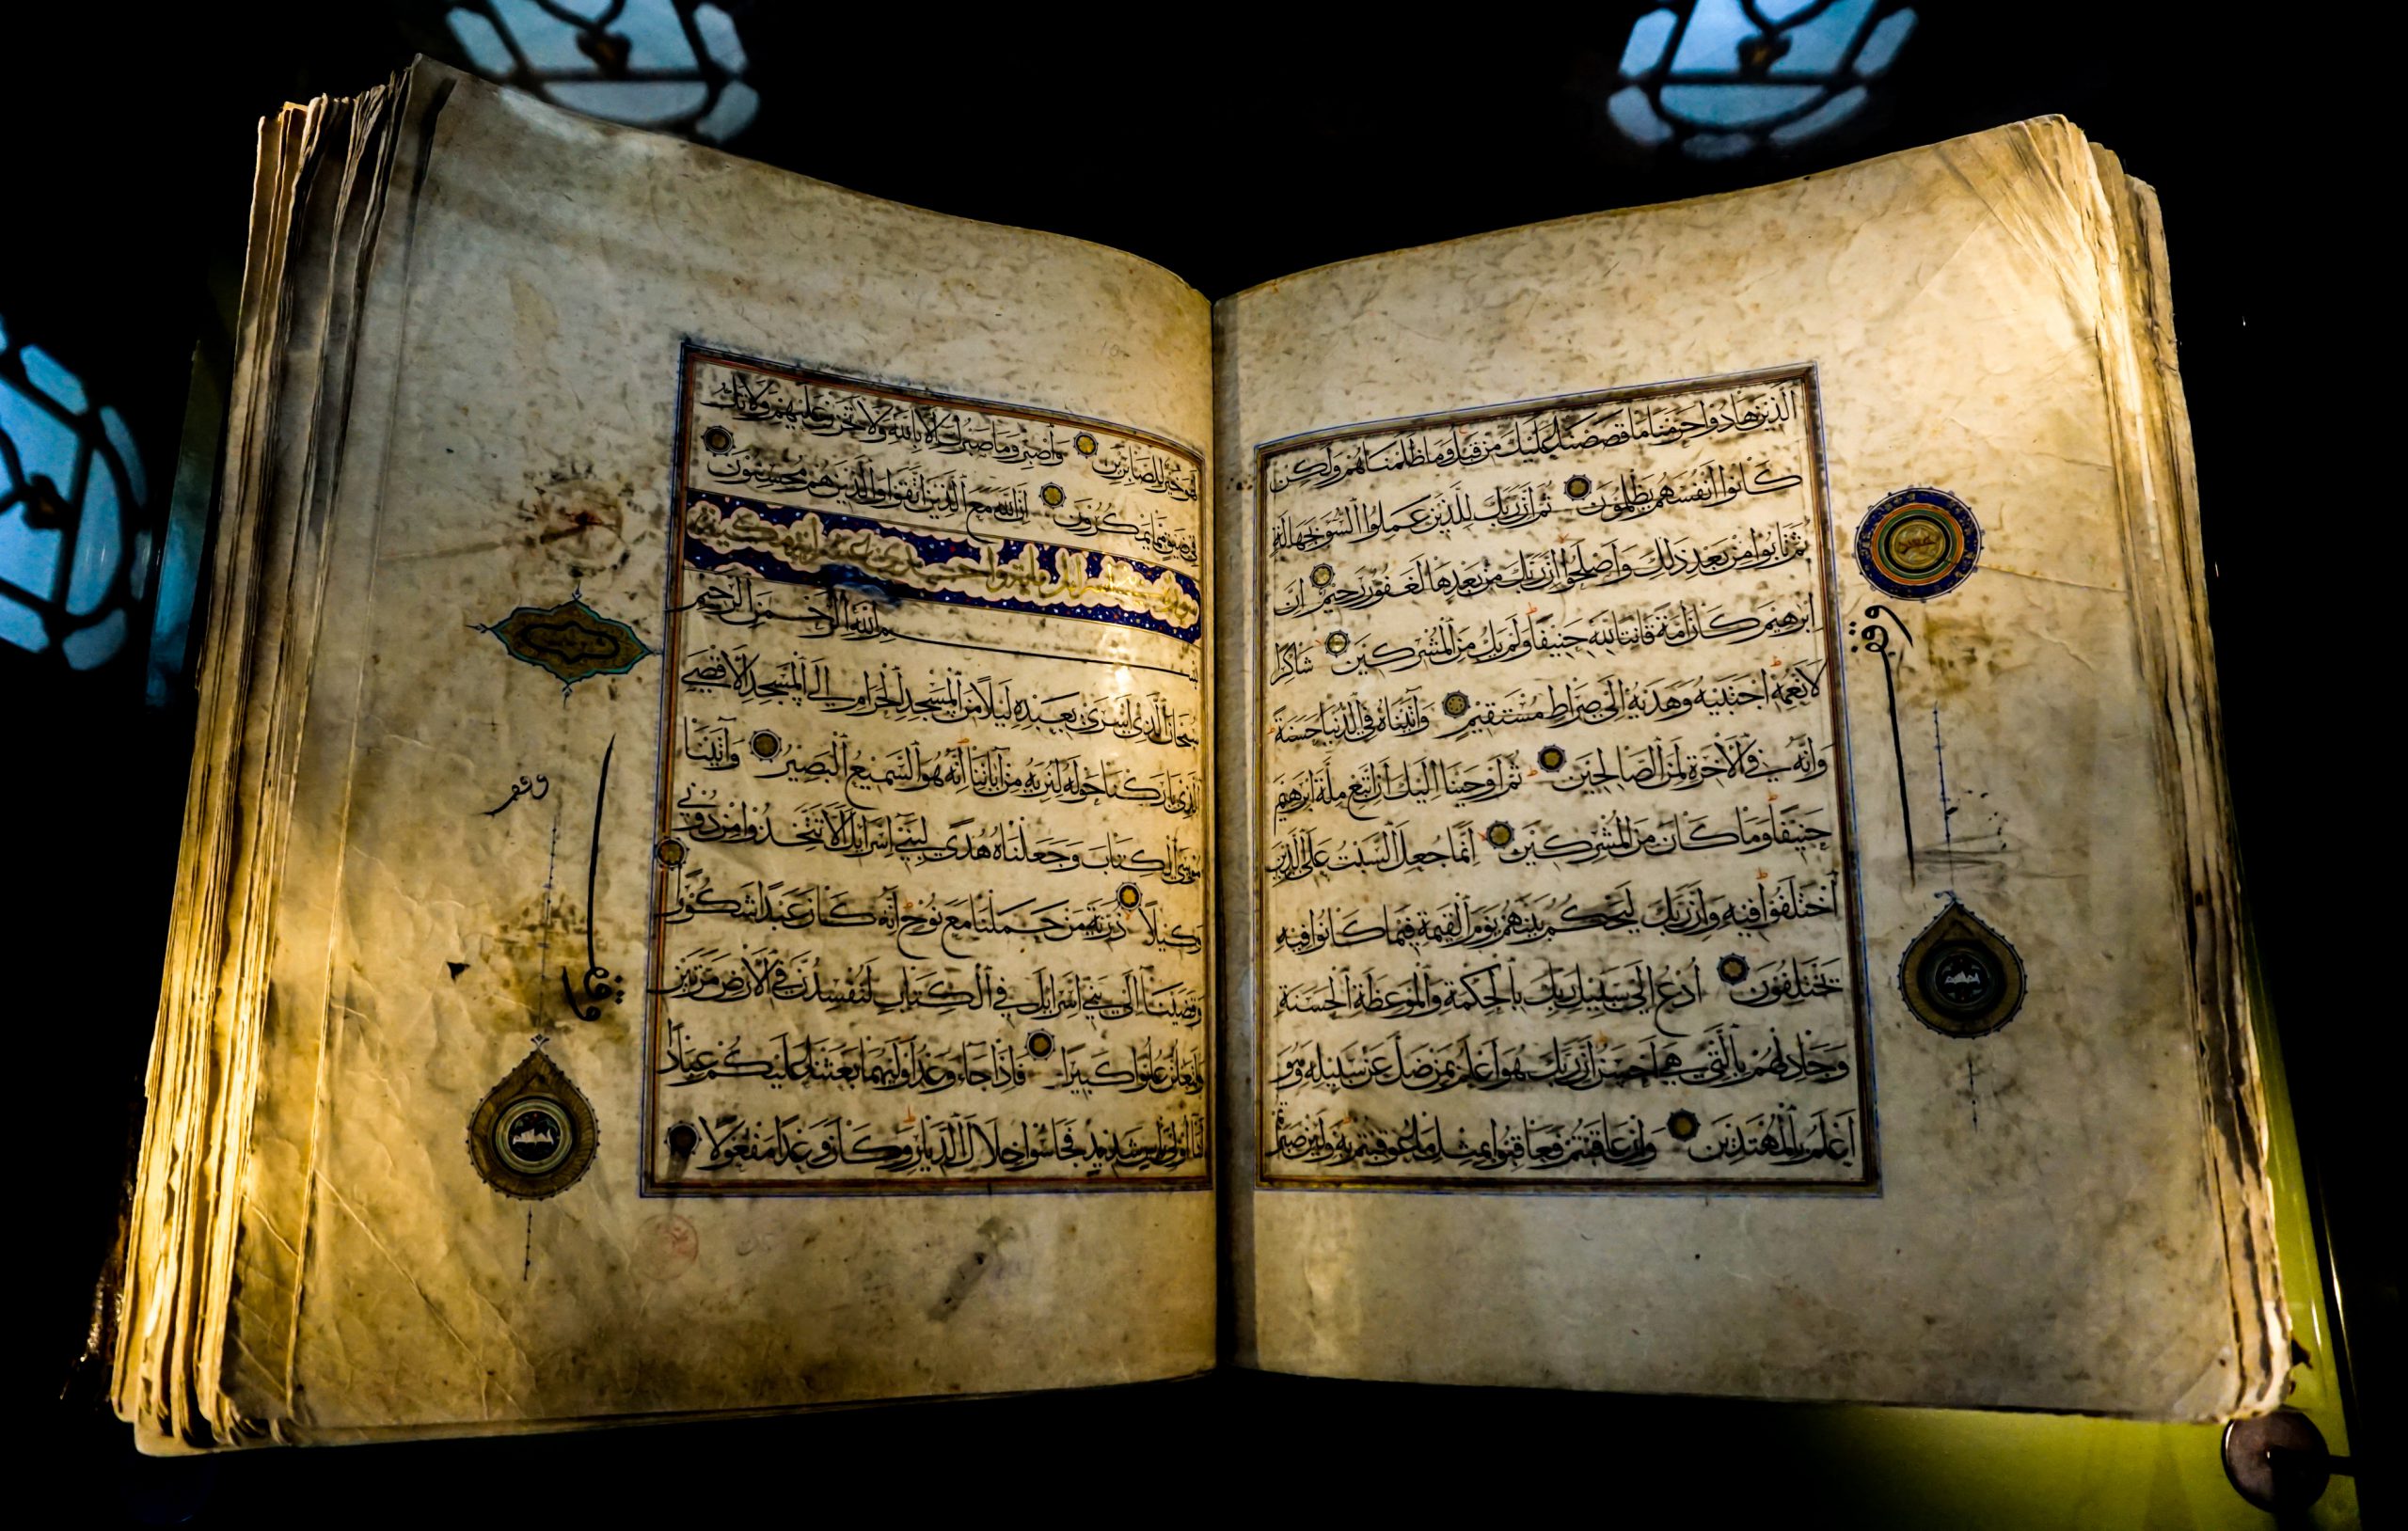 الَّذِينَ هَادُوا حَرَّمْنَا مَا قَصَصْنَا عَلَيْكَ مِنْ قَبْلُ وَمَا ظَلَمْنَاهُمْ وَلَكِنْ
كَانُوا أَنْفُسَهُمْ يَظْلِمُونَ ثُمَّ إِنَّ رَبَّكَ لِلَّذِينَ عَمِلُوا السُّوءَ بِجَهَالَةٍ
ثُمَّ تَابُوا مِنْ بَعْدِ ذَلِكَ وَأَصْلَحُوا إِنَّ رَبَّكَ مِنْ بَعْدِهَا لَغَفُورٌ رَحِيمٌ إِنَّ
إِبْرَهِيمَ كَانَ أُمَّةً قَانِتًا لِلَّهِ حَنِيفًا وَلَمْ يَكُ مِنَ الْمُشْرِكِينَ شَاكِرًا
لِأَنْعُمِهِ اجْتَبَيهُ وَهَدَيهُ إِلَى صِرَاطٍ مُسْتَقِيمٍ وَآتَيْنَاهُ فِي الدُّنْيَا حَسَنَةً
وَإِنَّهُ فِي الْآخِرَةِ لَمِنَ الصَّالِحِينَ ثُمَّ أَوْحَيْنَا إِلَيْكَ أَنِ اتَّبِعْ مِلَّةَ إِبْرَهِيمَ
حَنِيفًا وَمَا كَانَ مِنَ الْمُشْرِكِينَ إِنَّمَا جُعِلَ السَّبْتُ عَلَى الَّذِينَ
اخْتَلَفُوا فِيهِ وَإِنَّ رَبَّكَ لَيَحْكُمُ بَيْنَهُمْ يَوْمَ الْقِيمَةِ فِيمَا كَانُوا فِيهِ
يَخْتَلِفُونَ ادْعُ إِلَى سَبِيلِ رَبِّكَ بِالْحِكْمَةِ وَالْمَوْعِظَةِ الْحَسَنَةِ
وَجَادِلْهُمْ بِالَّتِي هِيَ أَحْسَنُ إِنَّ رَبَّكَ هُوَ أَعْلَمُ بِمَنْ ضَلَّ عَنْ سَبِيلِهِ وَهُوَ
أَعْلَمُ بِالْمُهْتَدِينَ وَإِنْ عَاقَبْتُمْ فَعَاقِبُوا بِمِثْلِ مَا عُوقِبْتُمْ بِهِ وَلَئِنْ صَبَرْتُمْ
وقف
لَهُوَ خَيْرٌ لِلصَّابِرِينَ وَاصْبِرْ وَمَا صَبْرُكَ إِلَّا بِاللَّهِ وَلَا تَحْزَنْ عَلَيْهِمْ وَلَا تَكُ
فِي ضَيْقٍ مِمَّا يَمْكُرُونَ إِنَّ اللَّهَ مَعَ الَّذِينَ اتَّقَوْا وَالَّذِينَ هُمْ مُحْسِنُونَ
بِسْمِ اللَّهِ الرَّحْمَنِ الرَّحِيمِ
سُبْحَانَ الَّذِي أَسْرَى بِعَبْدِهِ لَيْلًا مِنَ الْمَسْجِدِ الْحَرَامِ إِلَى الْمَسْجِدِ الْأَقْصَى
الَّذِي بَارَكْنَا حَوْلَهُ لِنُرِيَهُ مِنْ آيَاتِنَا إِنَّهُ هُوَ السَّمِيعُ الْبَصِيرُ وَآتَيْنَا
مُوسَى الْكِتَابَ وَجَعَلْنَاهُ هُدًى لِبَنِي إِسْرَائِيلَ أَلَّا تَتَّخِذُوا مِنْ دُونِي
وَكِيلًا ذُرِّيَّةَ مَنْ حَمَلْنَا مَعَ نُوحٍ إِنَّهُ كَانَ عَبْدًا شَكُورًا
وَقَضَيْنَا إِلَى بَنِي إِسْرَائِيلَ فِي الْكِتَابِ لَتُفْسِدُنَّ فِي الْأَرْضِ مَرَّتَيْنِ
وَلَتَعْلُنَّ عُلُوًّا كَبِيرًا فَإِذَا جَاءَ وَعْدُ أُولَيهُمَا بَعَثْنَا عَلَيْكُمْ عِبَادًا
لَنَا أُولِي بَأْسٍ شَدِيدٍ فَجَاسُوا خِلَالَ الدِّيَارِ وَكَانَ وَعْدًا مَفْعُولًا